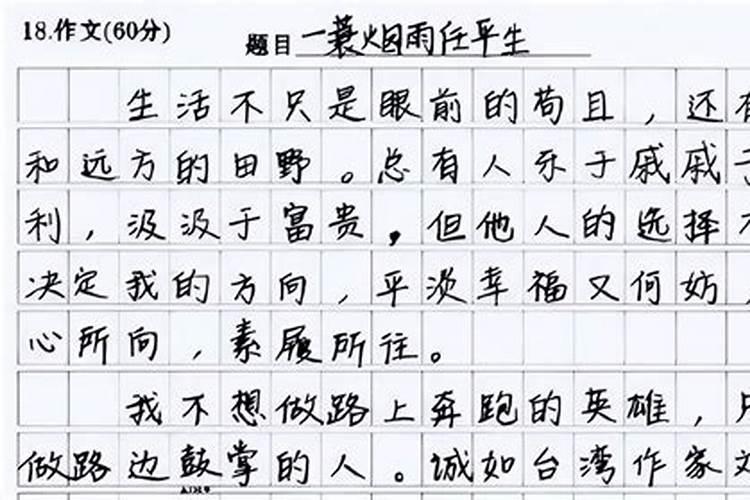 18.作文(60分)
题目 一蓑烟雨任平生
生活不只是眼前的苟且，还有
和远方的田野。总有人乐于戚戚于
利，汲汲于富贵，但他人的选择不
决定我的方向，平淡幸福又何妨，
心所向，素履所往。
我不想做路上奔跑的英雄，只
做路边鼓掌的人。诚如台湾作家刘